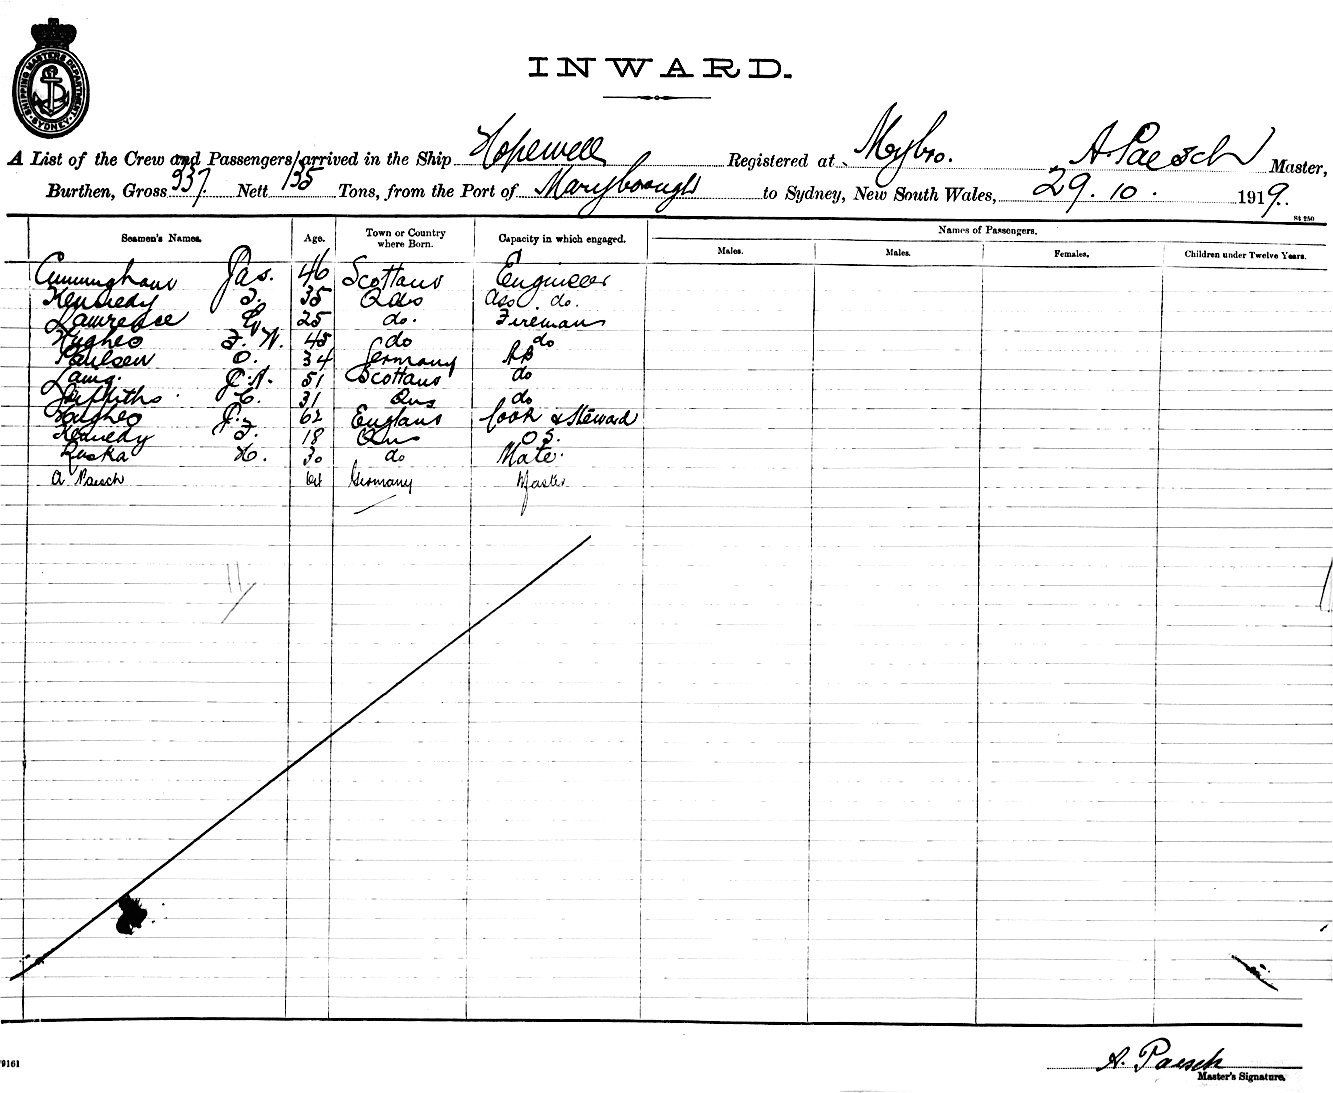 SHIPPING MASTERS DEPARTMENT SYDNEY
INWARD.
A List of the Crew and Passengers arrived in the Ship Hopewell Registered at Marybro. A Paesch Master,
Burthen, Gross 337. Nett 135 Tons, from the Port of Maryborough to Sydney, New South Wales, 29. 10. 1919.
84 250
Seamen's Names. Age. Town or Country where Born. Capacity in which engaged. Names of Passengers.
Males. Males. Females. Children under Twelve Years.
Cunningham Jas. 46 Scotland Engineer
Kennedy T. 35 Qld Ass. do.
Lawrence 25 do. Fireman
Hughes F. W. 45 do do
Paulsen O. 34 Germany AB
Laing. J. A. 51 Scotland do
Griffiths C. 31 Qld do
Hughes J. 62 England Cook & Steward
Kennedy F. 18 Qld O S.
Ruska H. 30 do Mate.
A Paesch Germany Master
11
9161
A. Paesch
Master's Signature.